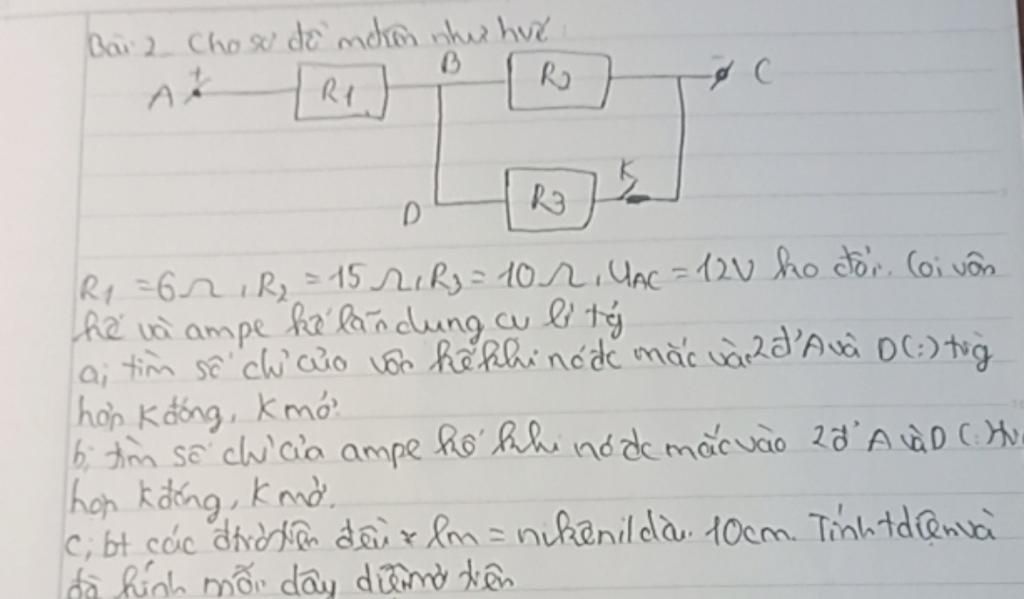 Bài 2. Cho sơ đồ mđiện như hvẽ.
A + R1 B R2 C
D R3 K
R1 = 6Ω, R2 = 15Ω, R3 = 10Ω, UAC = 12V ko đổi. Coi vôn
kế và ampe kế là dụng cụ lí tg
a, tìm số chỉ của vôn kế khi nó đc mắc vào 2 đ' A và D (:) trg
hợp K đóng, K mở.
b, tìm số chỉ của ampe kế khi nó đc mắc vào 2 đ' A và D (:)
hợp K đóng, K mở.
c, bt các đtrở trên đều lm = nikênil dài 10cm. Tính tdiện và
đg kính mỗi dây điện trở trên